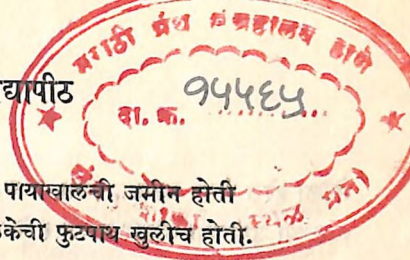 मराठी ग्रंथ संग्रहालय ठाणे
द्यापीठ
दा. क. १५५६५
पायाखालची जमीन होती
केची फुटपाथ खुलीच होती.